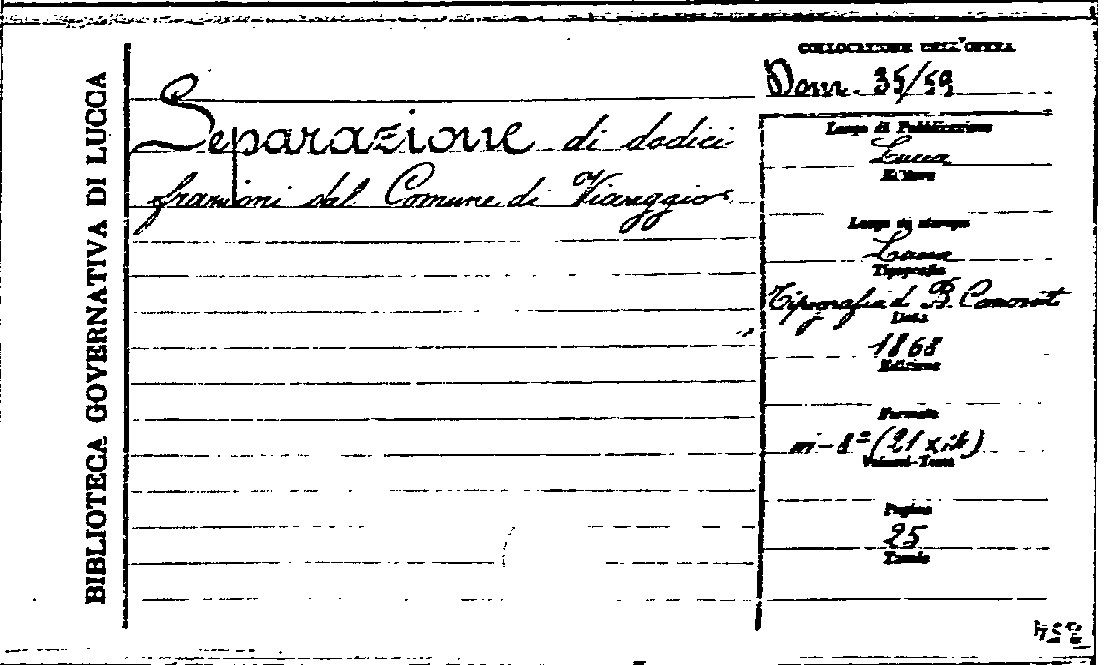 BIBLIOTECA GOVERNATIVA DI LUCCA
Separazione di dodici
frazioni dal Comune di Viareggio
COLLOCAZIONE DELL'OPERA
35/59
Luogo di Pubblicazione
Lucca
Editore
Luogo di stampa
Lucca
Tipografia
Tipografia d B.
Data
1868
Edizione
Formato
in-8º (21 x
Volumi-Tomi
Pagine
25
Tavole